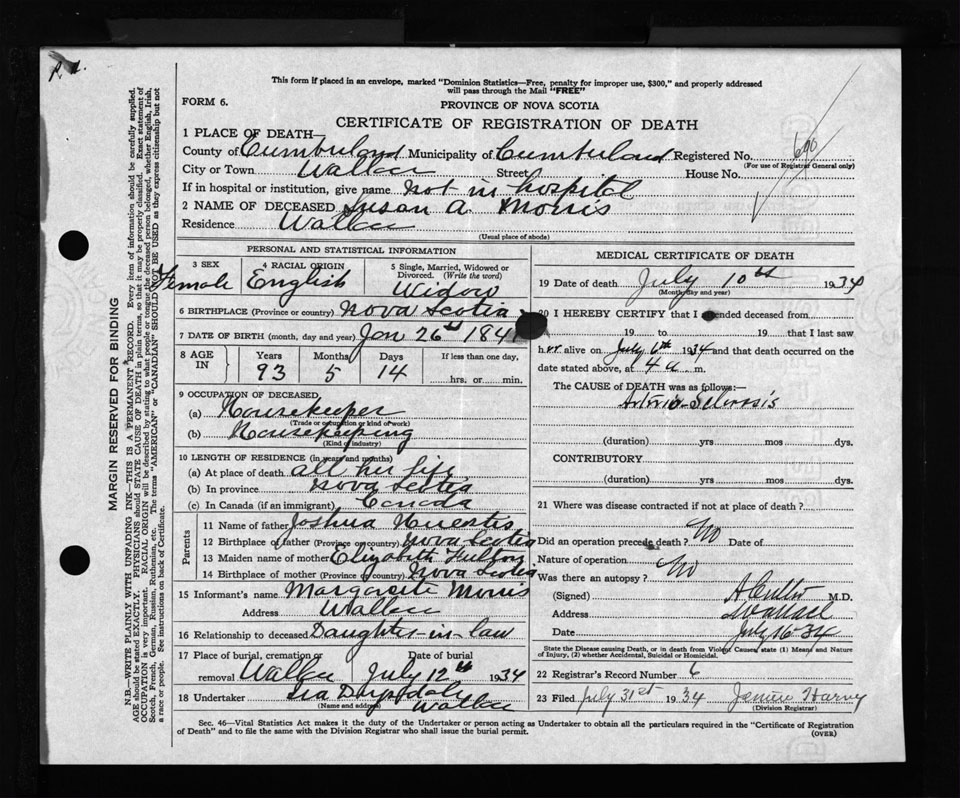 R.
This form if placed in an envelope, marked "Dominion Statistics—Free, penalty for improper use, $300," and properly addressed
will pass through the Mail "FREE"
FORM 6.
PROVINCE OF NOVA SCOTIA
CERTIFICATE OF REGISTRATION OF DEATH
1 PLACE OF DEATH—
County of Cumberland Municipality of Cumberland Registered No. 690
(For use of Registrar General only)
City or Town Wallace Street House No.
If in hospital or institution, give name not in hospital
2 NAME OF DECEASED Susan A. Morris
Residence Wallace
(Usual place of abode)
PERSONAL AND STATISTICAL INFORMATION
3 SEX 4 RACIAL ORIGIN 5 Single, Married, Widowed or
Divorced. (Write the word)
Female English Widow
6 BIRTHPLACE (Province or country) Nova Scotia
7 DATE OF BIRTH (month, day and year) Jan 26th 184
8 AGE IN Years Months Days If less than one day,
93 5 14 hrs. or min.
9 OCCUPATION OF DECEASED
(a) Housekeeper
(Trade or occupation or kind of work)
(b) Housekeeping
(Kind of industry)
10 LENGTH OF RESIDENCE (in years and months)
(a) At place of death all her life
(b) In province Nova Scotia
(c) In Canada (if an immigrant) Canada
Parents
11 Name of father Joshua
12 Birthplace of father (Province or country) Nova Scotia
13 Maiden name of mother Elizabeth Fulton
14 Birthplace of mother (Province or country) Nova Scotia
15 Informant's name Margarete Morris
Address Wallace
16 Relationship to deceased Daughter-in-law
17 Place of burial, cremation or Date of burial
removal Wallace July 12th 1934
18 Undertaker
(Name and address) Wallace
MEDICAL CERTIFICATE OF DEATH
19 Date of death July 10th 1934
(Month, day and year)
20 I HEREBY CERTIFY that I attended deceased from
19 to 19 that I last saw
her alive on July 6th 1934 and that death occurred on the
date stated above, at 4 a. m.
The CAUSE of DEATH was as follows:—
Arterio-Sclerosis
(duration) yrs mos dys.
CONTRIBUTORY
(duration) yrs mos dys.
21 Where was disease contracted if not at place of death?
Did an operation precede death? No Date of
Nature of operation
Was there an autopsy? No
(Signed) M.D.
Address
Date July 16-34
State the Disease causing Death, or in death from Violent Causes state (1) Means and Nature
of Injury, (2) whether Accidental, Suicidal or Homicidal.
22 Registrar's Record Number 6
23 Filed July 31st 1934 Harvey
(Division Registrar)
Sec. 46—Vital Statistics Act makes it the duty of the Undertaker or person acting as Undertaker to obtain all the particulars required in the "Certificate of Registration
of Death" and to file the same with the Division Registrar who shall issue the burial permit.
(OVER)
MARGIN RESERVED FOR BINDING
N.B.—WRITE PLAINLY WITH UNFADING INK—THIS IS A PERMANENT RECORD. Every item of information should be carefully supplied.
AGE should be stated EXACTLY. PHYSICIANS should STATE CAUSE OF DEATH in plain terms, so that it may be properly classified. Exact statement of
OCCUPATION is very important. RACIAL ORIGIN will be described by stating to what people or tongue the deceased person belonged, whether English, Irish,
Scotch, French, German, Russian, Ruthenian, etc. The terms "AMERICAN" or "CANADIAN" SHOULD NOT BE USED as they express citizenship but not
a race or people. See instructions on back of Certificate.